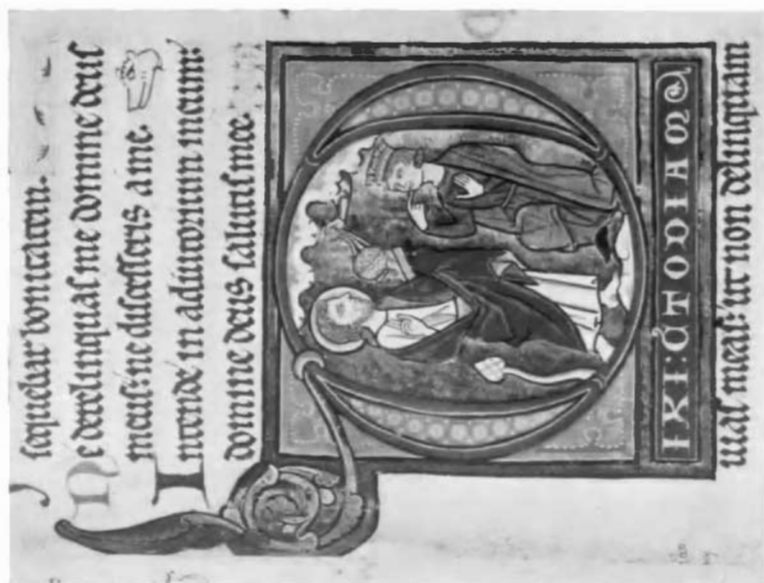 sequebar bonitatem.
Ne derelinquas me domine deus
meus: ne discesseris a me.
Intende in adiutorium meum:
domine deus salutis mee.
DIXI:
uias meas: ut non delinquam